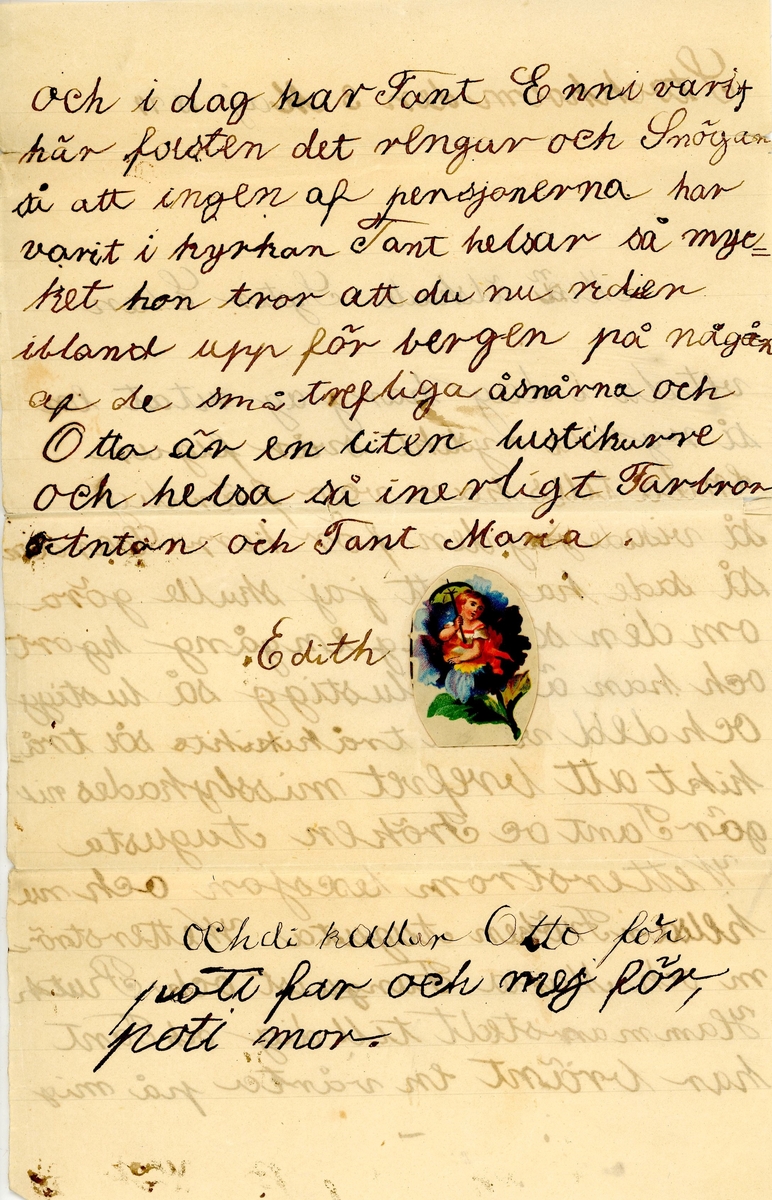 och i dag har Tant Enni varit
här fasten det rengur och Snögar
så att ingen af persjonerna har
varit i kyrkan Tant helsar så myc=
ket hon tror att du nu rider
ibland upp för bergen på någån
af de små trefliga åsnårna och
Otto är en liten lustikurre
och helsa så inerligt Farbror
Anton och Tant Maria .
Edith
och di kallar Otto för
poti far och mej för,
poti mor.